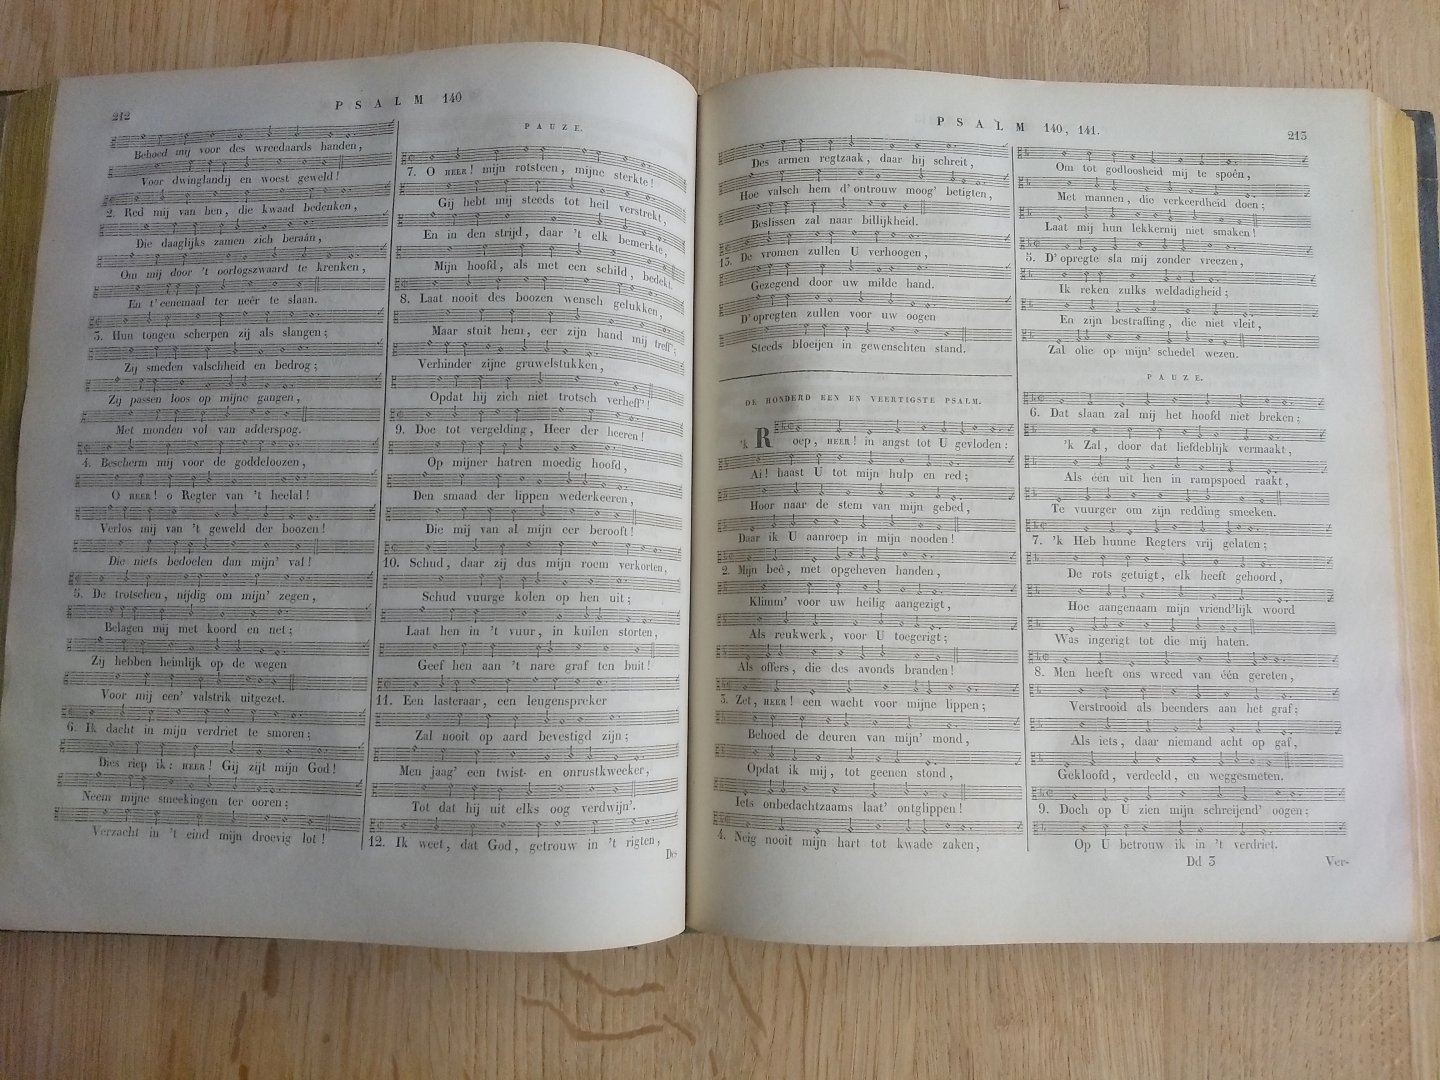 212
PSALM 140
Behoed mij voor des wreedaards handen,
Voor dwinglandij en woest geweld!
2. Red mij van hen, die kwaad bedenken,
Die daaglijks zamen zich beraân,
Om mij door 't oorlogszwaard te krenken,
En t'eenemaal ter neêr te slaan.
3. Hun tongen scherpen zij als slangen;
Zij smeden valschheid en bedrog;
Zij passen loos op mijne gangen,
Met monden vol van adderspog.
4. Bescherm mij voor de goddeloozen,
O HEER! o Regter van 't heelal!
Verlos mij van 't geweld der boozen!
Die niets bedoelen dan mijn' val!
5. De trotschen, nijdig om mijn' zegen,
Belagen mij met koord en net;
Zij hebben heimlijk op de wegen
Voor mij een' valstrik uitgezet.
6. Ik dacht in mijn verdriet te smoren;
Dies riep ik: HEER! Gij zijt mijn God!
Neem mijne smeekingen ter ooren;
Verzacht in 't eind mijn droevig lot!
PAUZE.
7. O HEER! mijn rotsteen, mijne sterkte!
Gij hebt mij steeds tot heil verstrekt,
En in den strijd, daar 't elk bemerkte,
Mijn hoofd, als met een schild, bedekt.
8. Laat nooit des boozen wensch gelukken,
Maar stuit hem, eer zijn hand mij treff';
Verhinder zijne gruwelstukken,
Opdat hij zich niet trotsch verheff'!
9. Doe tot vergelding, Heer der heeren!
Op mijner hatren moedig hoofd,
Den smaad der lippen wederkeeren,
Die mij van al mijn eer berooft!
10. Schud, daar zij dus mijn roem verkorten,
Schud vuurge kolen op hen uit;
Laat hen in 't vuur, in kuilen storten,
Geef hen aan 't nare graf ten buit!
11. Een lasteraar, een leugenspreker
Zal nooit op aard bevestigd zijn;
Men jaag' een twist- en onrustkweeker,
Tot dat hij uit elks oog verdwijn'.
12. Ik weet, dat God, getrouw in 't rigten,
Des
PSALM 140, 141.
213
Des armen regtzaak, daar hij schreit,
Hoe valsch hem d'ontrouw moog' betigten,
Beslissen zal naar billijkheid.
13. De vromen zullen U verhoogen,
Gezegend door uw milde hand.
D'opregten zullen voor uw oogen
Steeds bloeijen in gewenschten stand.
DE HONDERD EEN EN VEERTIGSTE PSALM.
'k Roep, HEER! in angst tot U gevloden:
Ai! haast U tot mijn hulp en red;
Hoor naar de stem van mijn gebed,
Daar ik U aanroep in mijn nooden!
2. Mijn beê, met opgeheven handen,
Klimm' voor uw heilig aangezigt,
Als reukwerk, voor U toegerigt;
Als offers, die des avonds branden!
3. Zet, HEER! een wacht voor mijne lippen;
Behoed de deuren van mijn' mond,
Opdat ik mij, tot geenen stond,
Iets onbedachtzaams laat' ontglippen!
4. Neig nooit mijn hart tot kwade zaken,
Om tot godloosheid mij te spoên,
Met mannen, die verkeerdheid doen;
Laat mij hun lekkernij niet smaken!
5. D'opregte sla mij zonder vreezen,
Ik reken zulks weldadigheid;
En zijn bestraffing, die niet vleit,
Zal olie op mijn' schedel wezen.
PAUZE.
6. Dat slaan zal mij het hoofd niet breken;
'k Zal, door dat liefdeblijk vermaakt,
Als één uit hen in rampspoed raakt,
Te vuurger om zijn redding smeeken.
7. 'k Heb hunne Regters vrij gelaten;
De rots getuigt, elk heeft gehoord,
Hoe aangenaam mijn vriend'lijk woord
Was ingerigt tot die mij haten.
8. Men heeft ons wreed van één gereten,
Verstrooid als beenders aan het graf;
Als iets, daar niemand acht op gaf,
Gekloofd, verdeeld, en weggesmeten.
9. Doch op U zien mijn schreijend' oogen;
Op U betrouw ik in 't verdriet.
Dd 3
Ver-